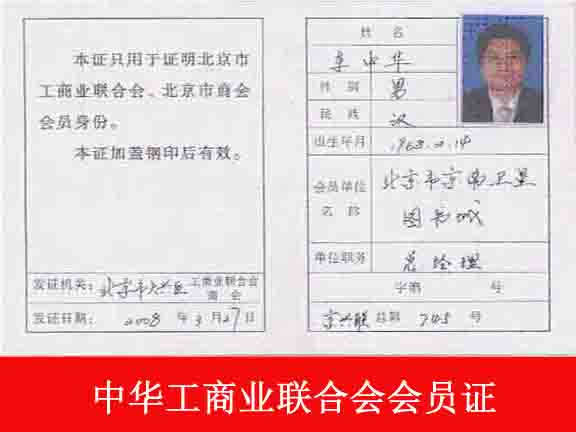 本证只用于证明北京市
工商业联合会、北京市商会
会员身份。
本证加盖钢印后有效。
发证机关：北京市大兴区工商业联合会
商 会
发证日期：2008 年 3 月 27 日
姓 名
李中华
性 别 男
民 族 汉
出生年月
会员单位 北京市京南卫星
名 称 图书城
单位职务 总经理
字第 号
京兴联 总第 745 号
中华工商业联合会会员证